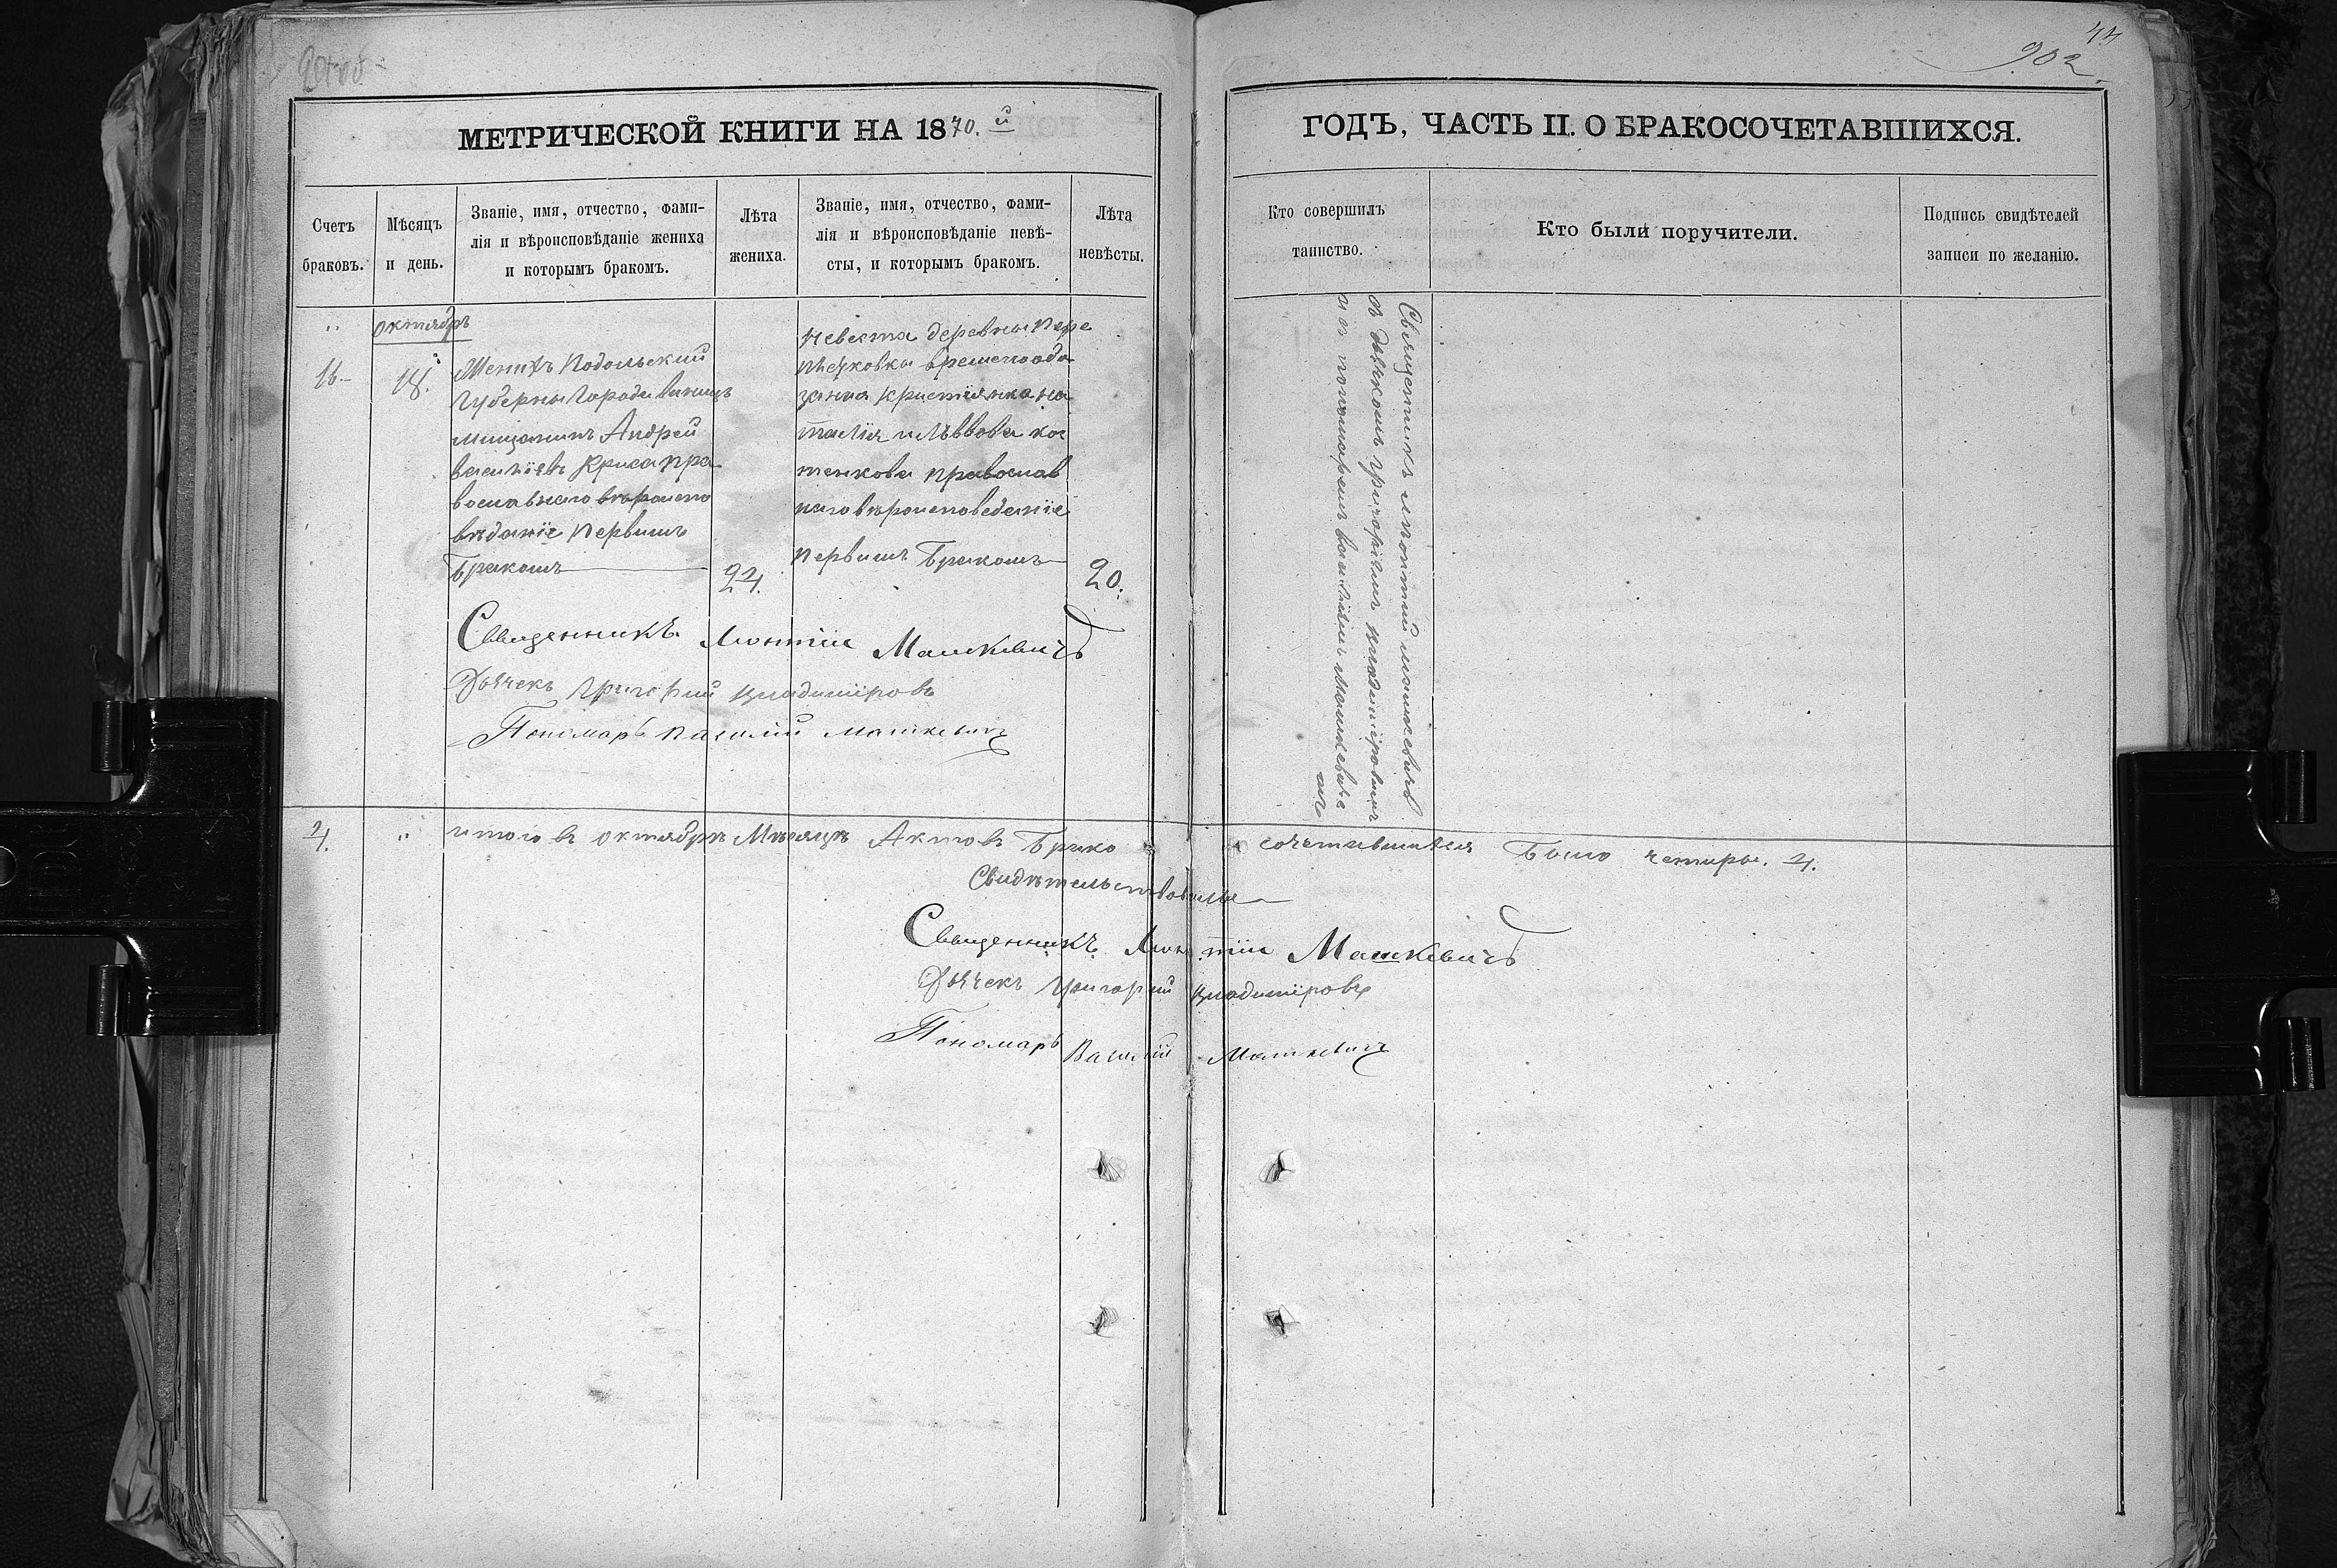 44
902.
МЕТРИЧЕСКОЙ КНИГИ НА 1870.й
ГОДЪ, ЧАСТЬ II. О БРАКОСОЧЕТАВШИХСЯ.
Счетъ
браковъ.
Мѣсяцъ
и день.
Званіе, имя, отчество, фами-
лія и вѣроисповѣданіе жениха
и которымъ бракомъ.
Лѣта
жениха.
Званіе, имя, отчество, фами-
лія и вѣроисповѣданіе невѣ-
сты, и которымъ бракомъ.
Лѣта
невѣсты.
Кто совершилъ
таинство.
Кто были поручители.
Подпись свидѣтелей
записи по желанію.
"
октябръ
16
18.
Женихъ Подольский
Губерны
мищанинъ Андрей
Криса пра
вославнаго вѣроиспо
вѣданіе первимъ
бракомъ
24.
Невеста деревны пере
временнообя
занна кристіянка На
талія
православ
наго вѣроисповеданіе
первимъ бракомъ
20.
Священникъ Леонтій Машкевичъ
Дьячекъ Григорий Владиміровъ
Пономарь Василий Машкевичъ
Священникъ Леонтий Машкевичъ
съ дьячкомъ Григоріемъ Владиміровимъ
и съ пономаремъ Василіемъ Машкевиче
мъ
4.
"
итого въ октябрѣ Мѣсяцѣ Актовъ Брако
сочетавшихся было четыры. 4.
Свидѣтельствовалы
Священникъ Леонтій Машкевичъ
Дьячекъ Григорий Владиміровъ
Пономарь Василій Машкевичъ